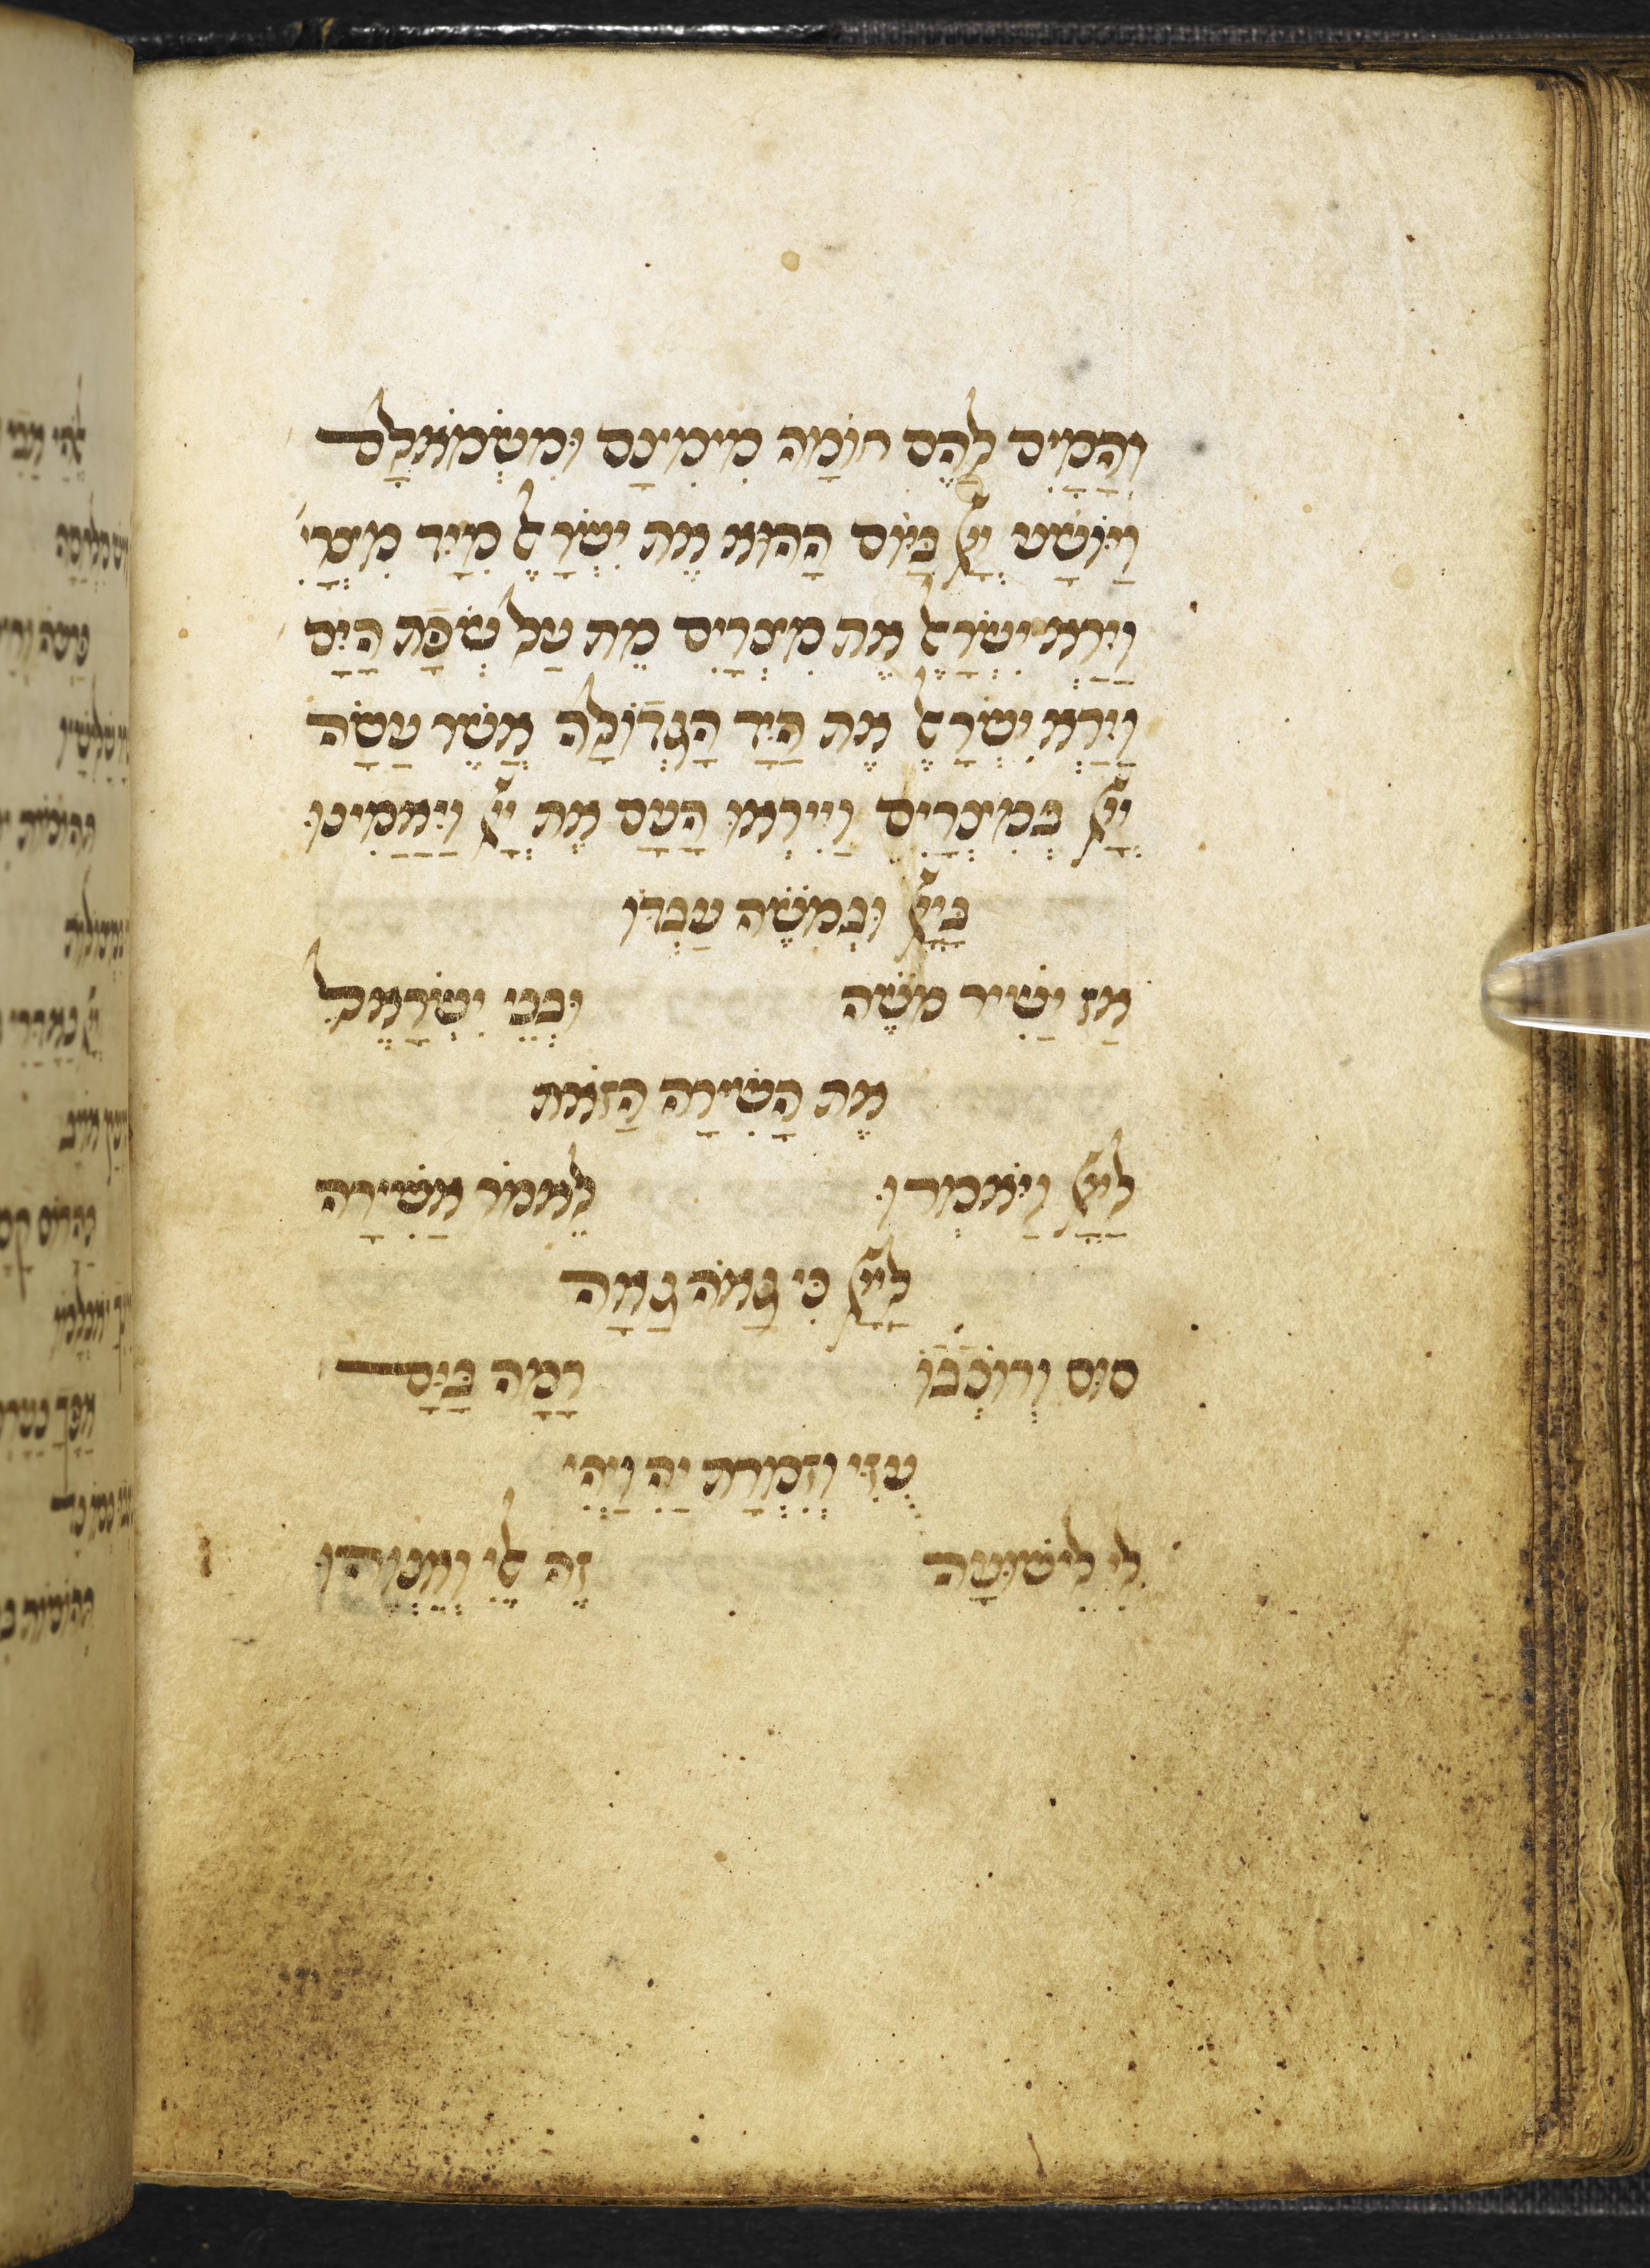 וְהַמַיִם לָהֶם חוֹמָה מִימִינָם וּמִשְׂמֹאלָם
וַיּוֹשַׁע יְיָ בַּיּוֹם הַהוּא אֶת יִשְׂרָאֵל מִיַּד מִצְרָי
וַיַּרְא יִשְׂרָאֵל אֶת מִצְרַיִם מֵת עַל שְׂפַת הַיָּם
וַיַּרְא יִשְׂרָאֵל אֶת הַיָּד הַגְּדוֹלָה אֲשֶׁר עָשָׂה
יְיָ בְּמִצְרַיִם וַיִּירְאוּ הָעָם אֶת יְיָ וַיַּאֲמִינוּ
בַּיְיָ וּבְמֹשֶׁה עַבְדּוֹ
אָז יָשִׁיר מֹשֶׁה וּבְנֵי יִשְׂרָאֵל
אֶת הַשִּׁירָה הַזֹּאת
לַיְיָ וַיֹּאמְרוּ לֵאמֹר אָשִׁירָה
לַיְיָ כִּי גָאֹה גָּאָה
סוּס וְרוֹכְבוֹ רָמָה בַיָּם
עָזִּי וְזִמְרָת יָהּ וַיְהִי
לִי לִישׁוּעָה זֶה אֵלִי וְאַנְוֵהוּ